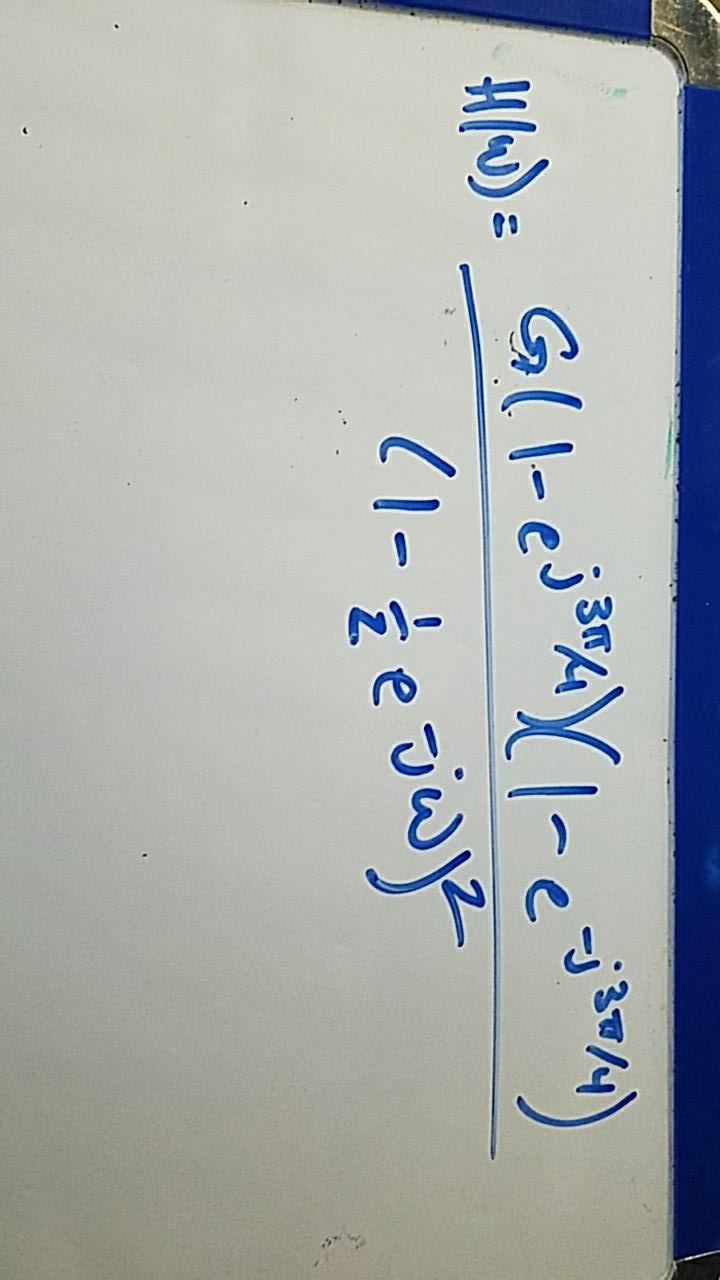 H(ω) = G(1 - e^{j3π/4})(1 - e^{-j3π/4})
(1 - 1/2 e^{-jω})^2